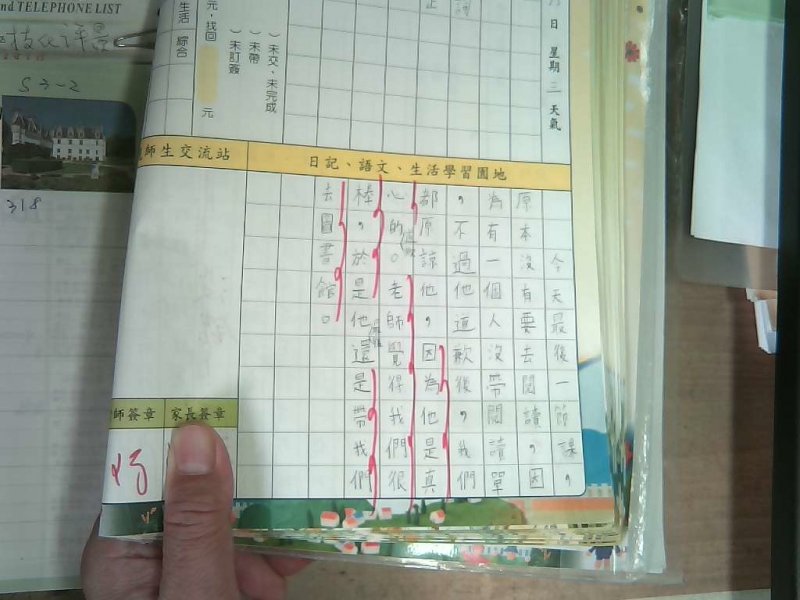 nd TELEPHONE LIST
S3-2
318
日 星期三 天氣
元，找回
元
）未交、未完成
）未帶
）未訂簽
生活
綜合
日記、語文、生活學習園地
師生交流站
今天最後一節課，
原本沒有要去閱讀，因
為有一個人沒帶閱讀單
，不過他道歉後，我們
都原諒他，因為他是真
心的。老師覺得我們很
棒，於是他還是帶我們
去圖書館。
師簽章
家長簽章